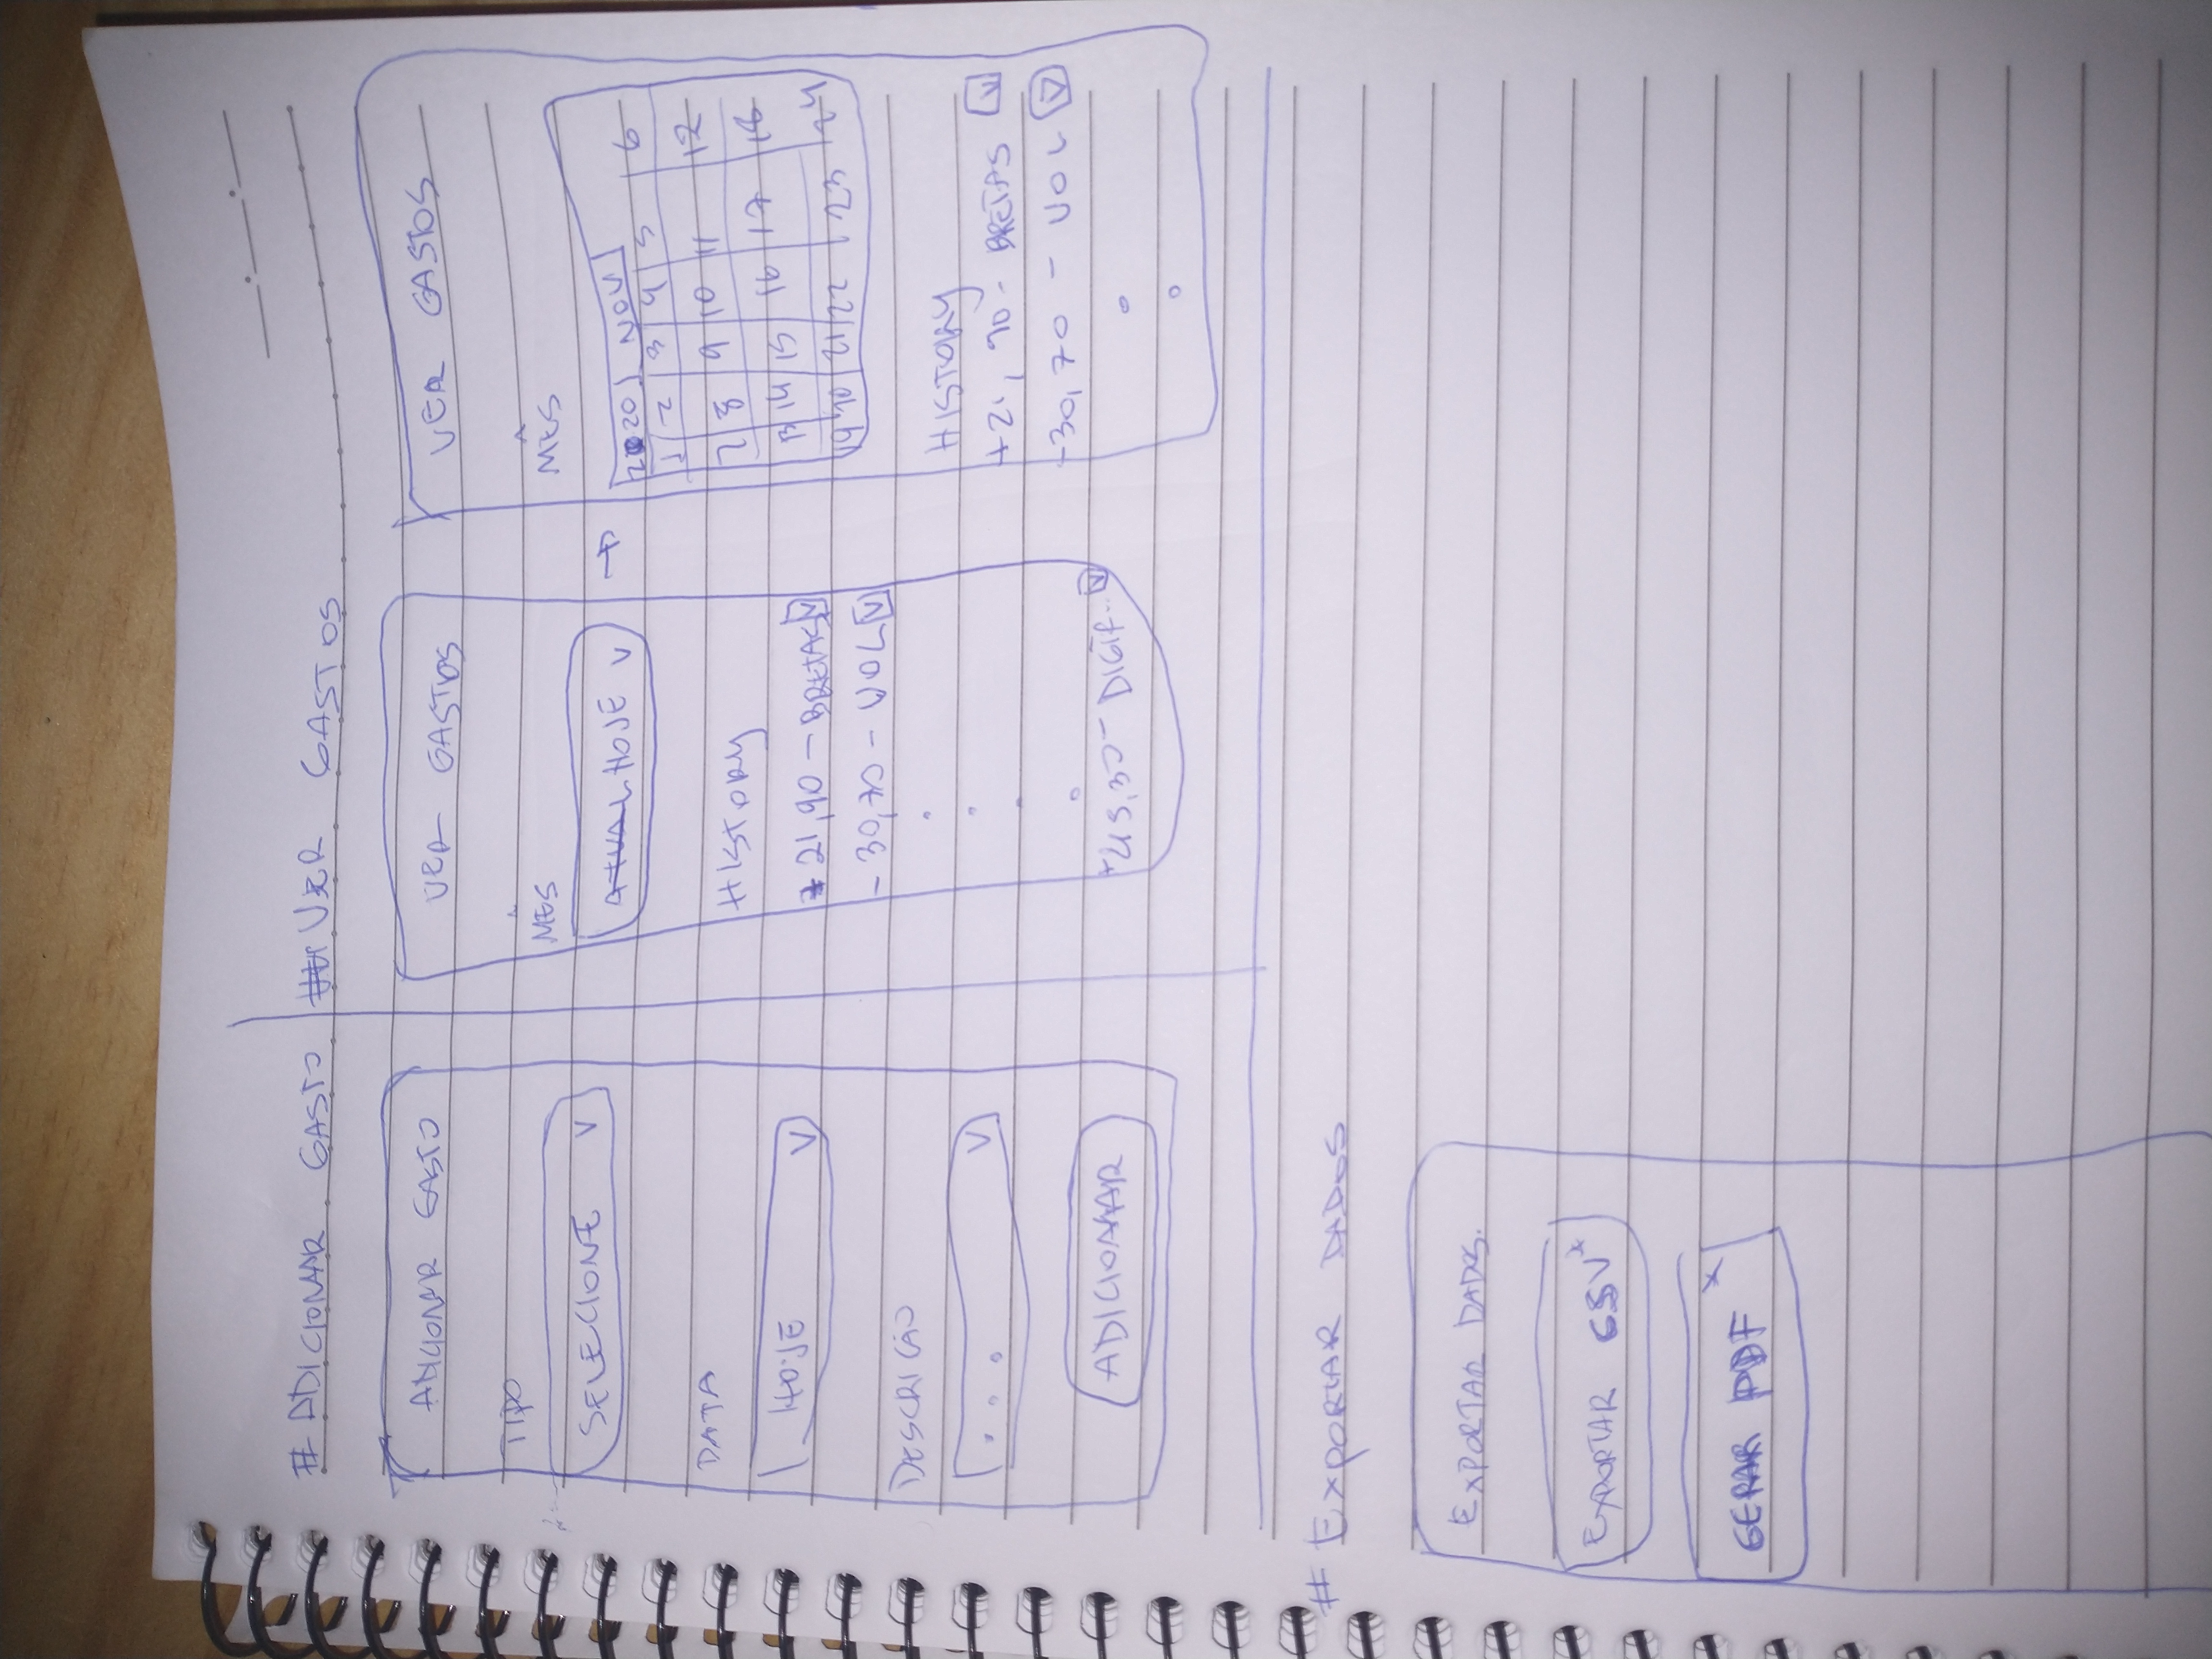 # ADICIONAR GASTO
# VER GASTOS
ADICIONAR GASTO
TIPO
SELECIONE V
DATA
HOJE V
DESCRICÃO
... V
ADICIONAR
VER GASTOS
MÊS
ATUAL HOJE V
HISTORY
+ 21,90 - BRETAS V
- 30,70 - VOL V
+45,30 - DIGIT.. V
→
VER GASTOS
MÊS
2020 NOV
1 2 3 4 5 6
7 8 9 10 11 12
13 14 15 16 17 18
19 20 21 22 23 24
HISTORY
+21,90 - BRETAS V
-30,70 - VOL V
# EXPORTAR DADOS
EXPORTAR DADOS.
EXPORTAR CSV*
GERAR PDF *